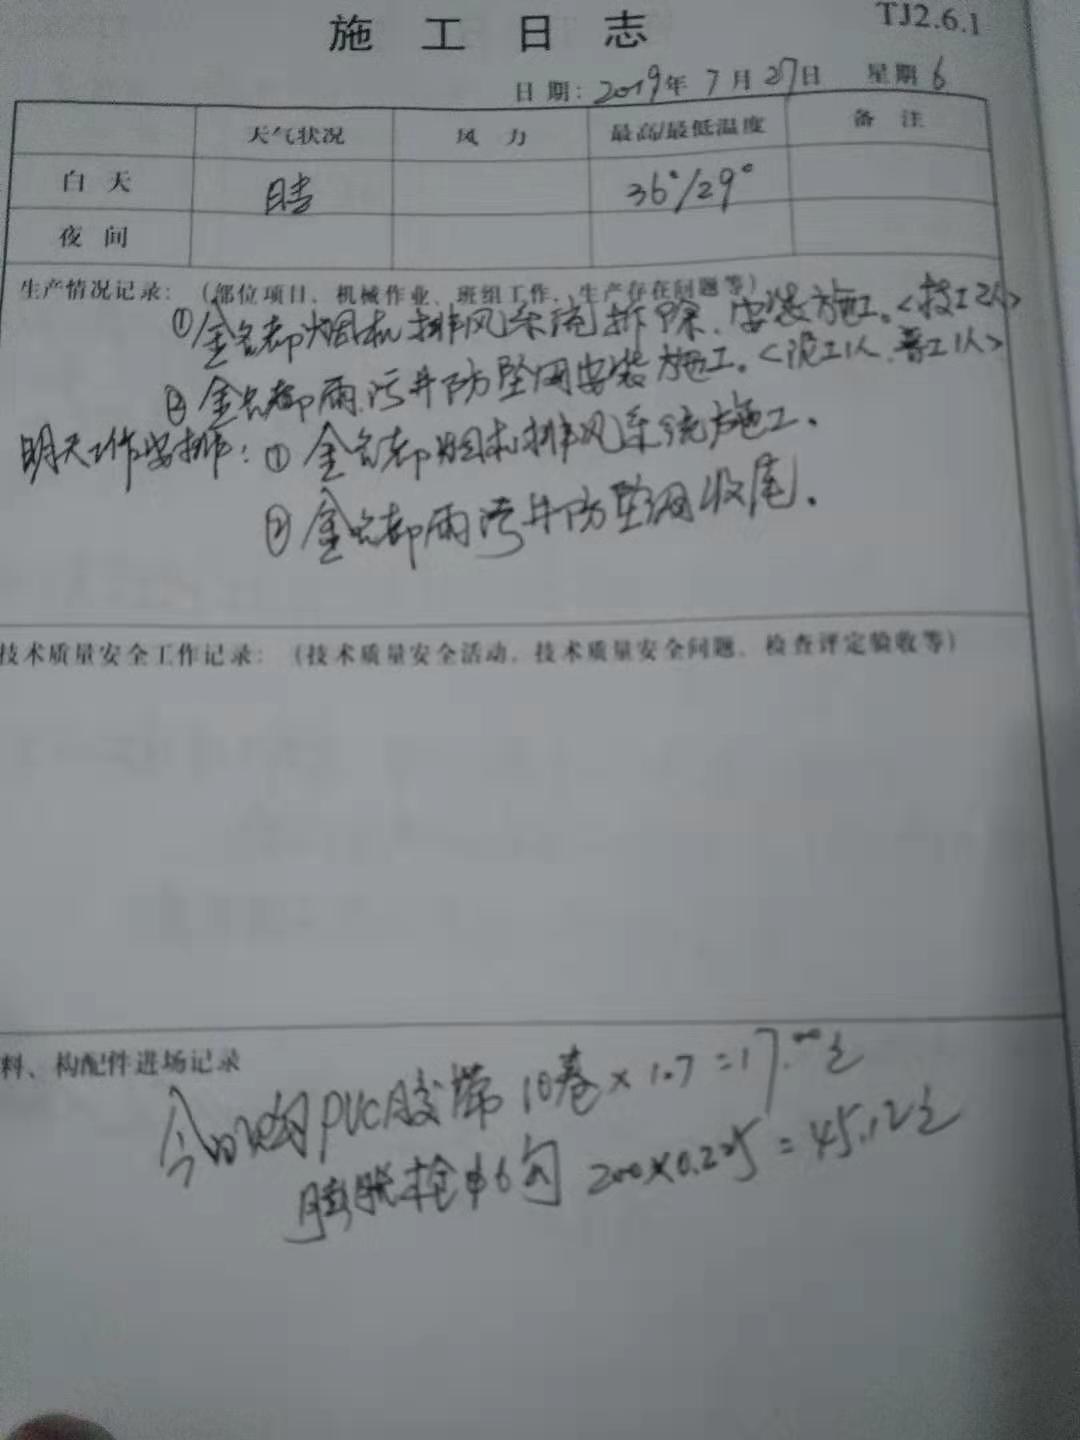 施工日志
TJ2.6.1
日期：2019年7月27日 星期6
天气状况 风力 最高/最低温度 备注
白天 晴 36°/29°
夜间
生产情况记录：（部位项目、机械作业、班组工作、生产存在问题等）
①金名都烟机排风系统拆除、安装施工。<技工2人>
②金名都雨污井防坠网安装施工。<泥工1人、普工1人>
明天工作安排：①金名都烟机排风系统施工。
②金名都雨污井防坠网收尾。
技术质量安全工作记录：（技术质量安全活动、技术质量安全问题、检查评定验收等）
料、构配件进场记录
今日购PVC胶带10卷×1.7=17.00元
膨胀栓φ6 200×0.225=45.12元